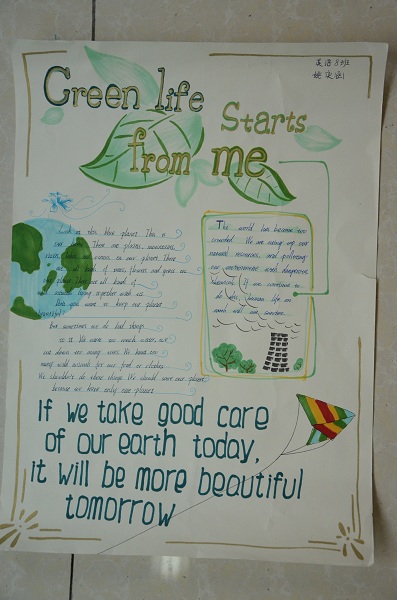 英语8班
Green life
Starts
from me
Such a nice blue planet. This is
our There are plants, mountains,
rivers, on our planet. There
are all kinds of trees, flowers and grass on
our planet. There are all kinds of
animals living together with us.
Do you want to keep our planet
beautiful?
But sometimes we do bad things
to it. We waste too much water, we
cut down too many trees. We hunt too
many wild animals for our food or clothes.
We shouldn't do these things. We should save our planet,
because we have only one planet.
The world has become
crowded. We are using up our
natural resources, and polluting
our environment with dangerous
chemicals. If we continue to
do this, human life on
earth will not survive.
If we take good care
of our earth today,
it will be more beautiful
tomorrow